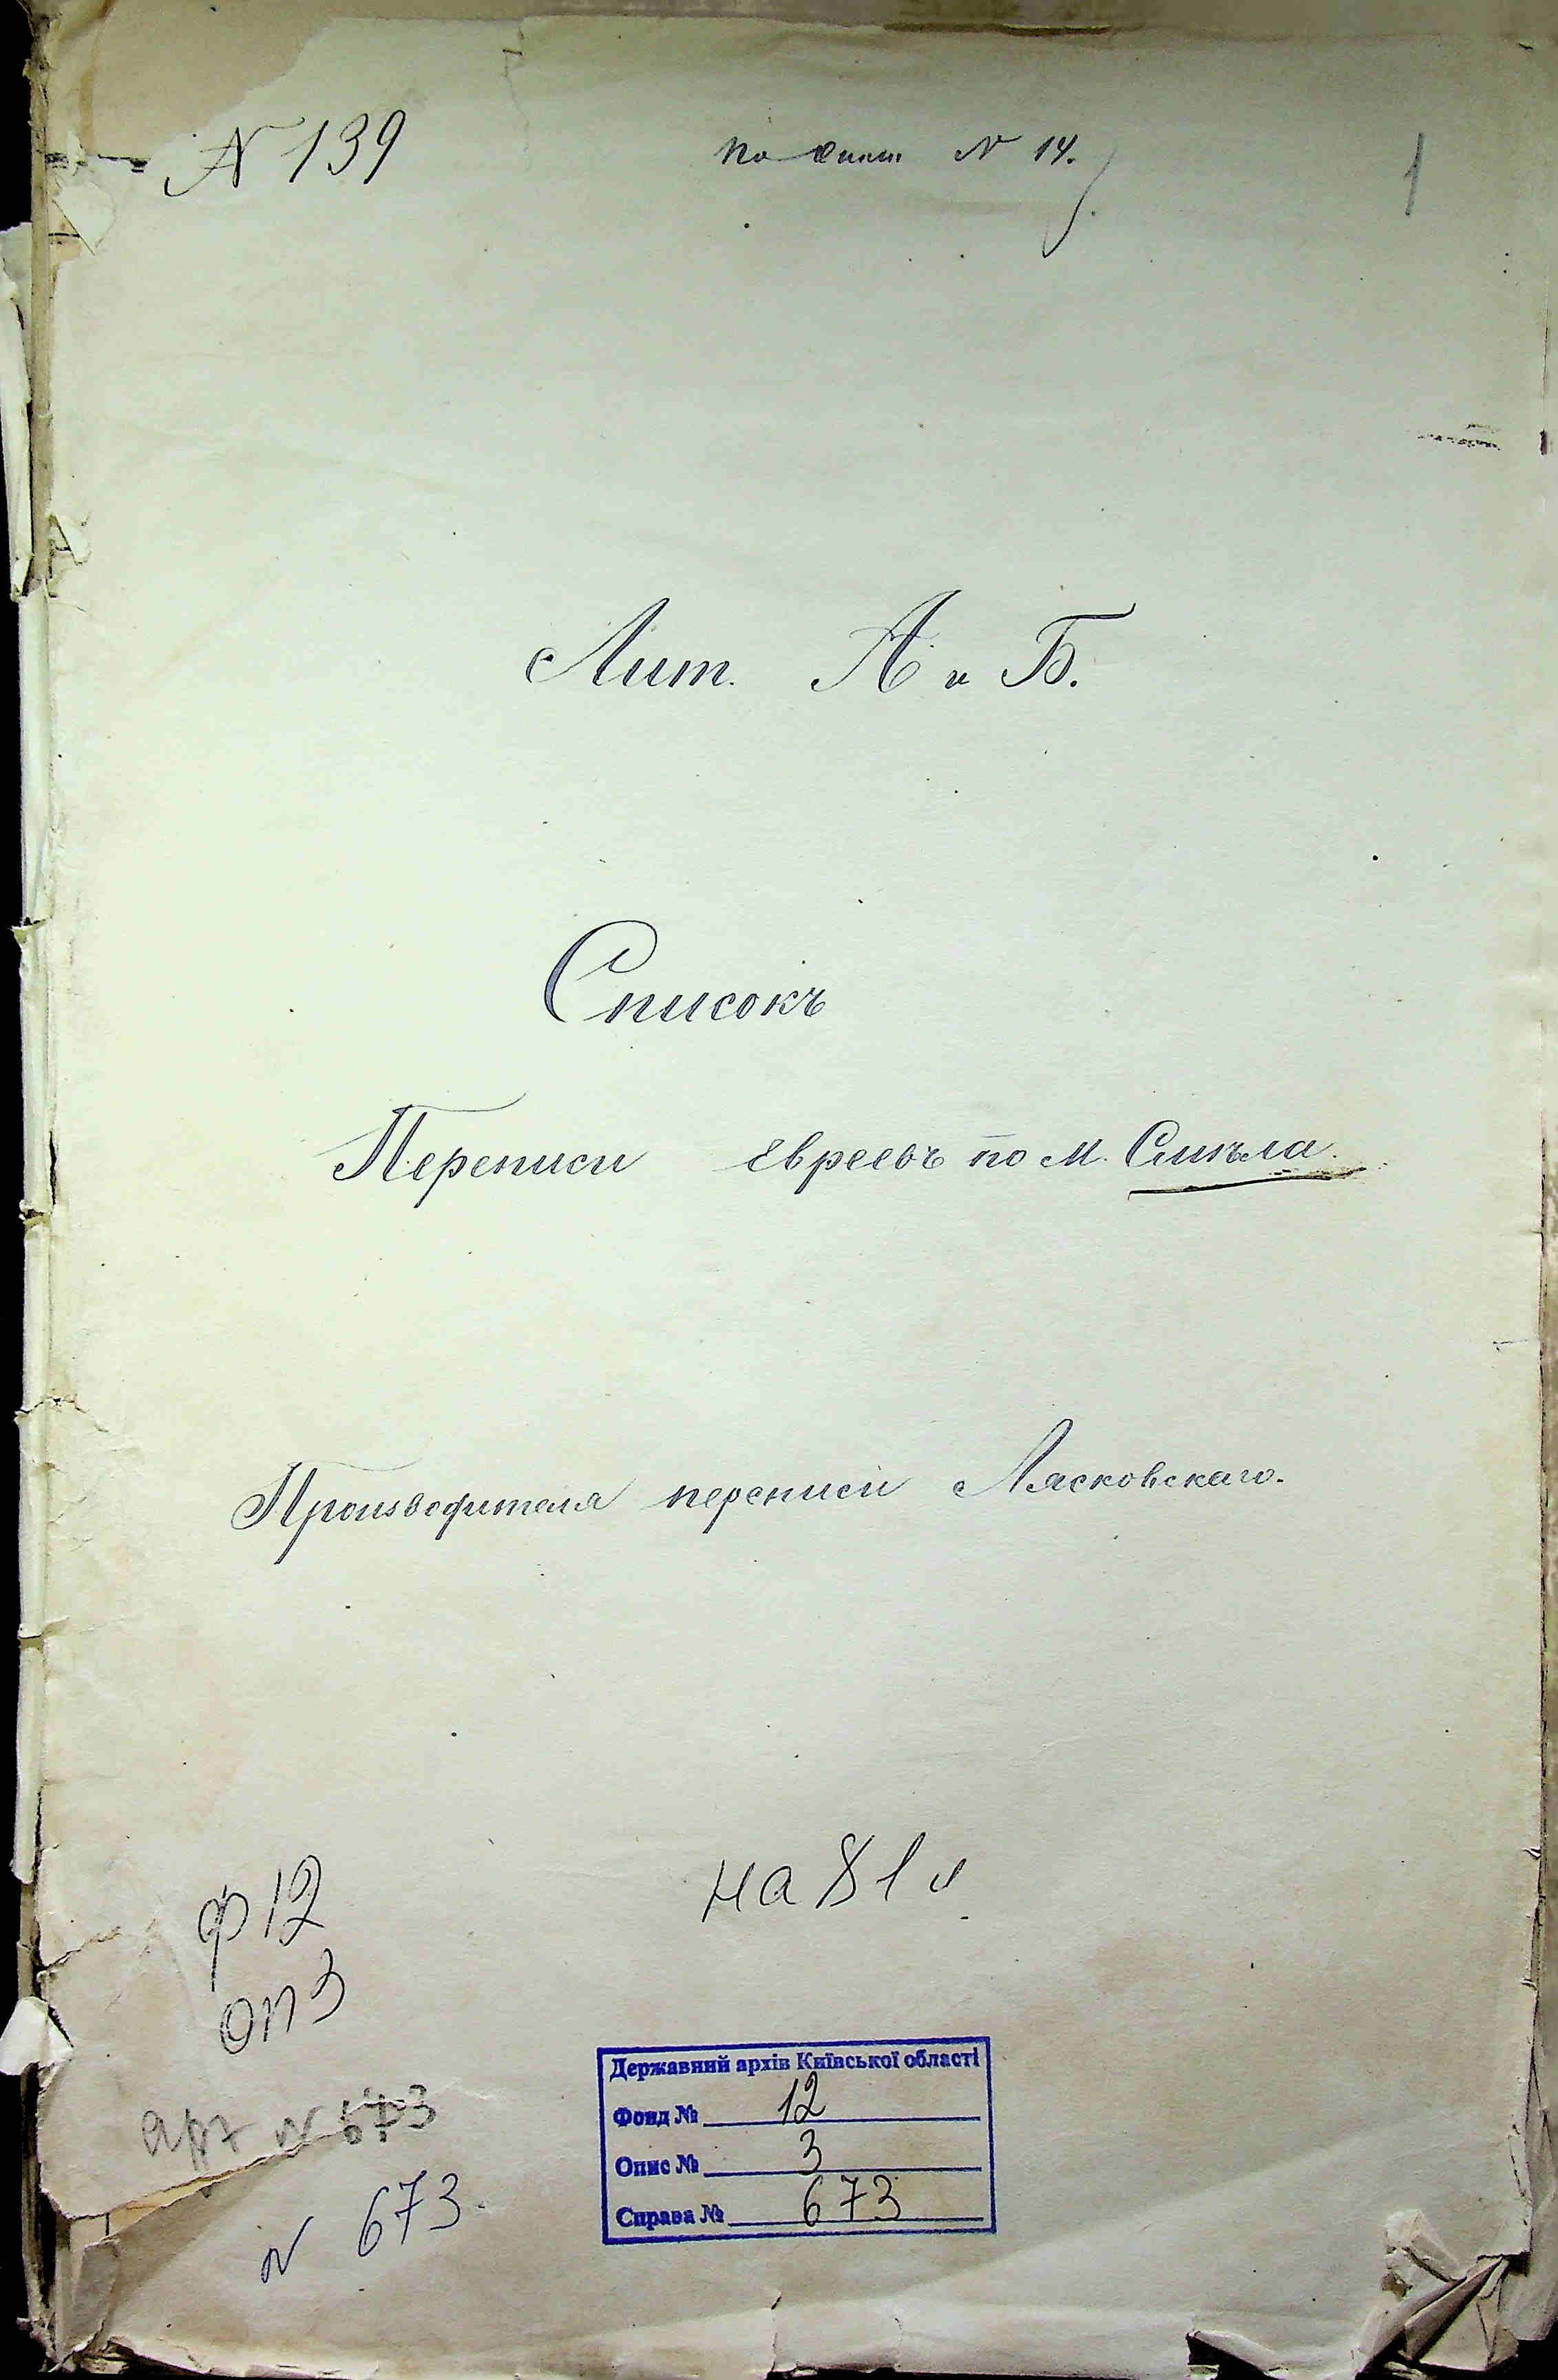 № 139
по опит № 14.
1
Лит. А и Б.
Списокъ
Переписи Евреевъ по м. Смѣла.
Производителя переписи Лясковскаго.
на 81 л
ф 12
оп 3
арх № 673
№ 673.
Державний архів Київської області
Фонд № 12
Опис № 3
Справа № 673